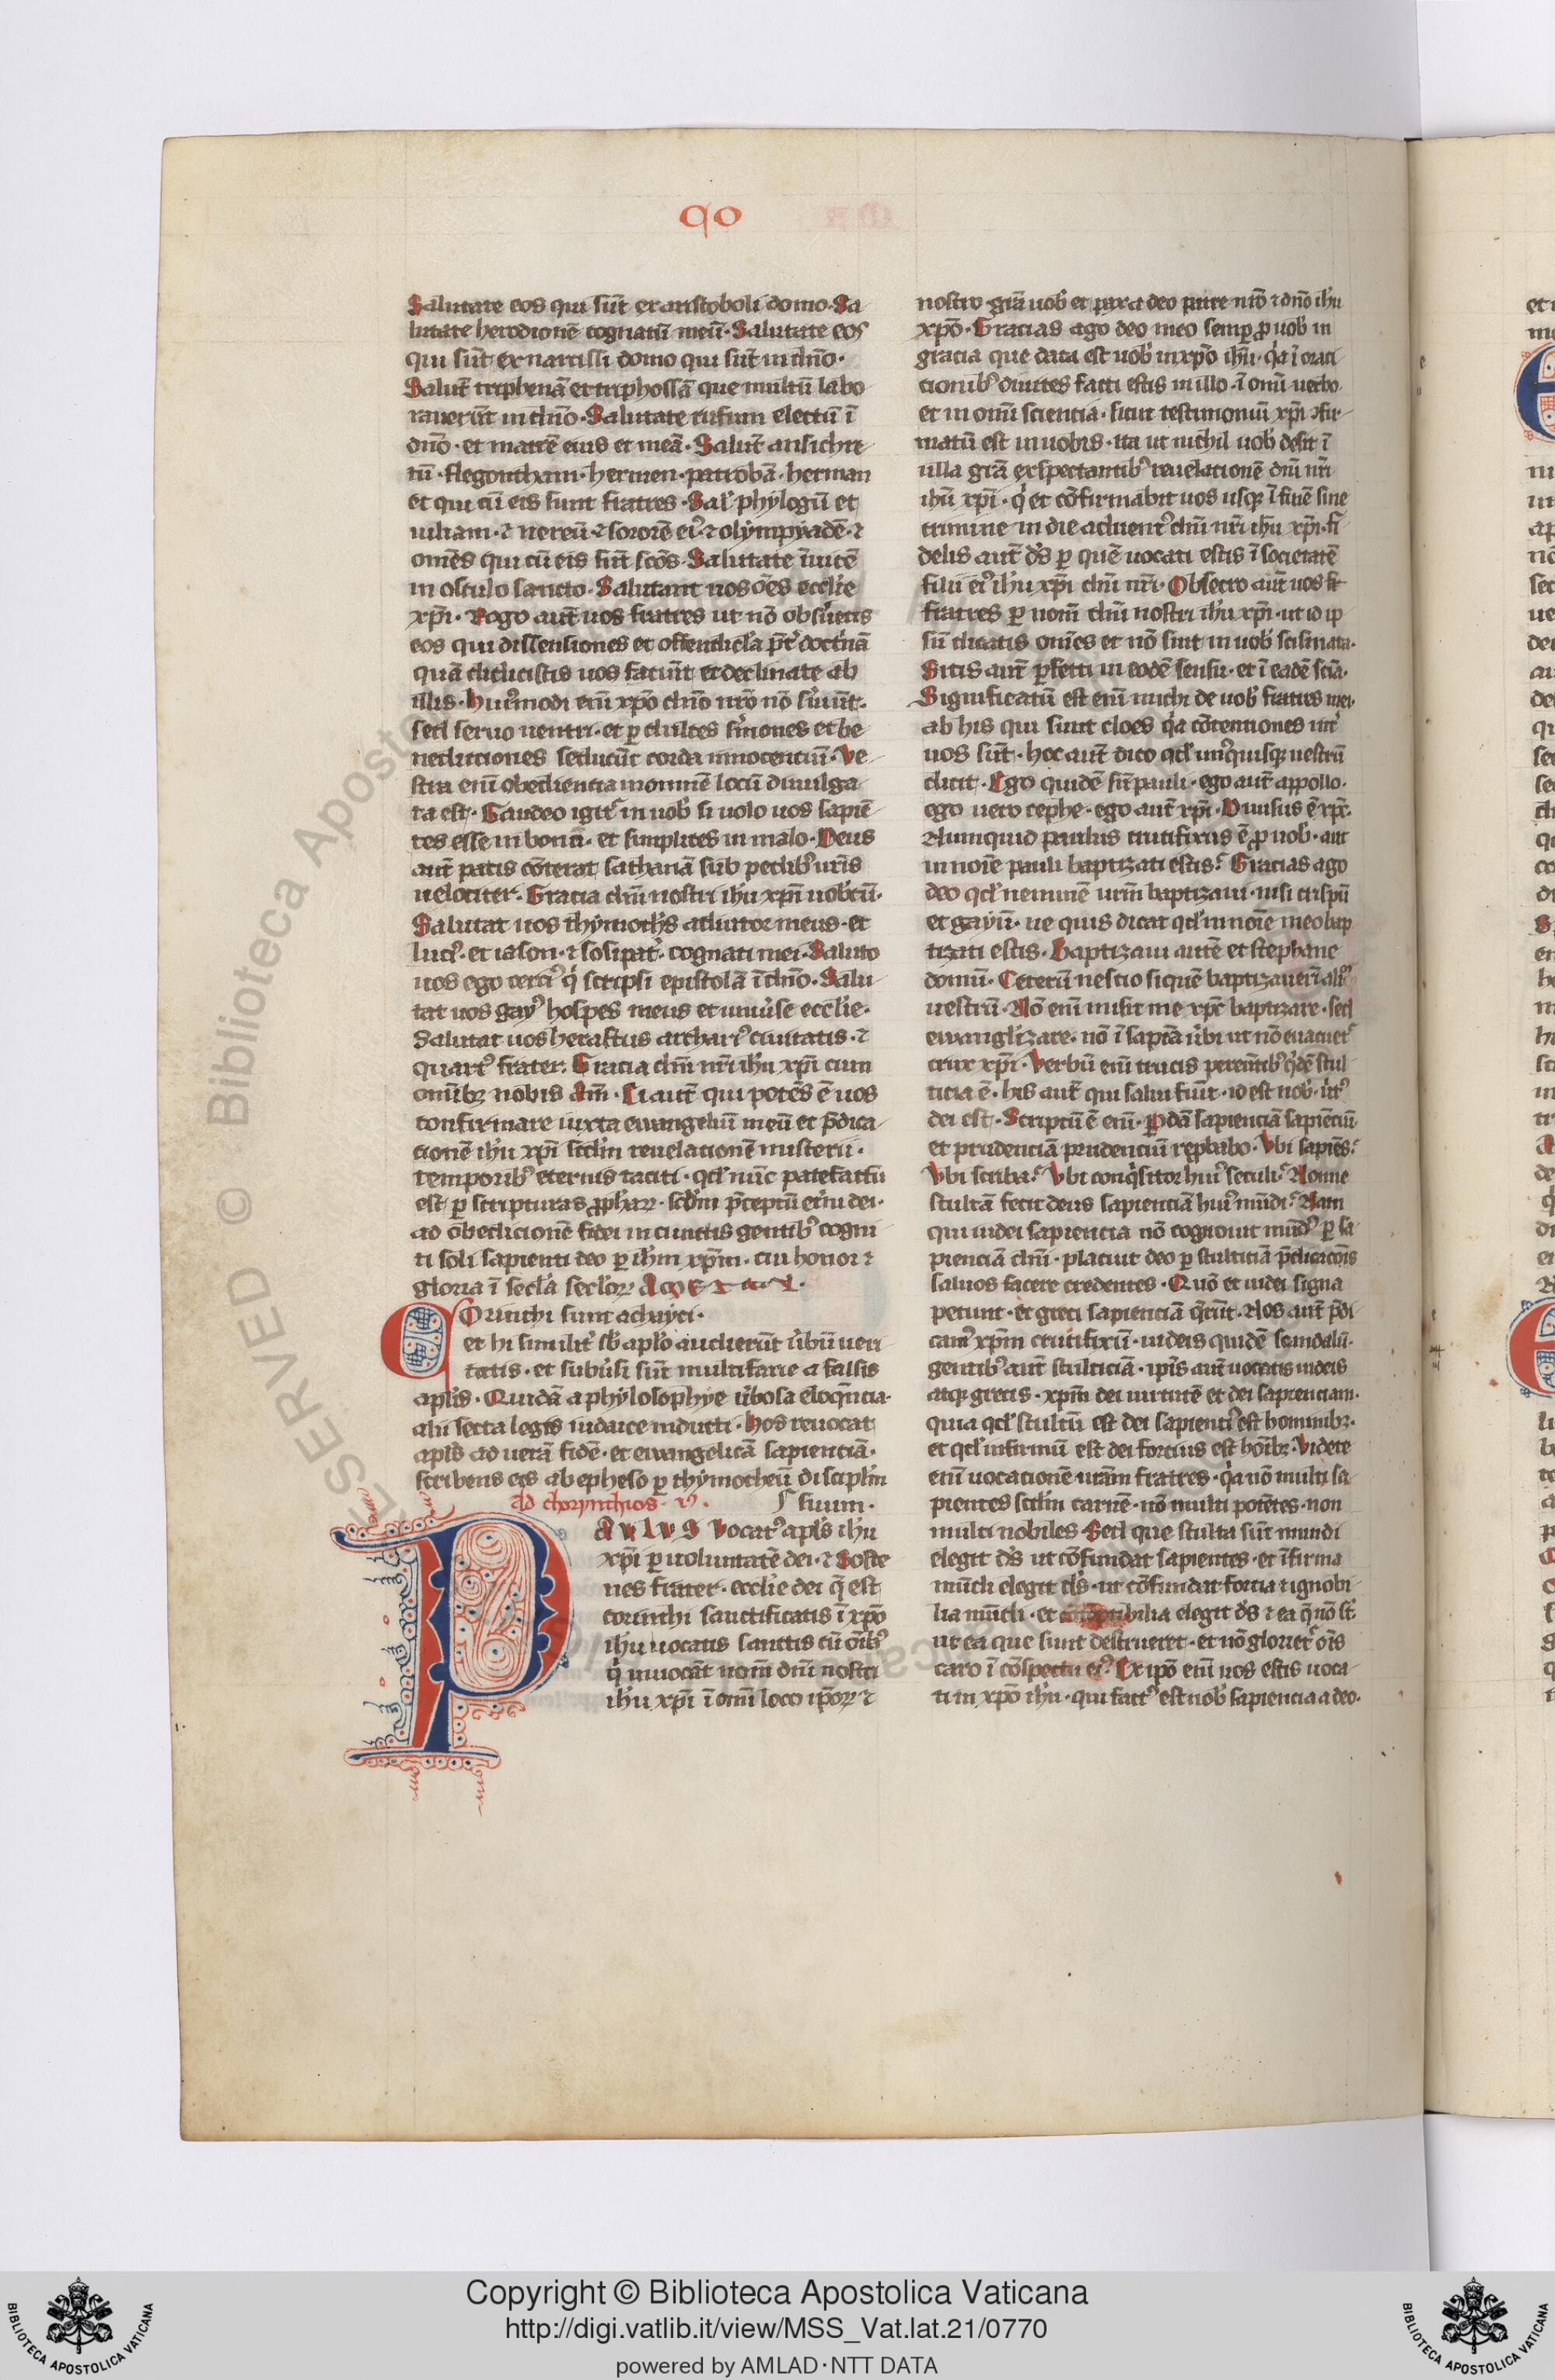 qo
Salutate eos qui sūt ex aristoboli domo. Sa-
lutate herodionē cognatū meū. Salutate eos
qui sūt ex narcissi domo qui sūt in dño.
Salut̄ triphenā et triphossā que multū labo
raverūt in dño. Salutate rufum electū ī
dño. et matrē eius et meā. Salut̄ ansicrit
tū. flegontham. hermen. patrobā. herman
et qui cū eis sunt fratres. Sal' phylogū et
iuliam. ⁊ nereū. ⁊ sororē ei9. ⁊ olympyadē. ⁊
omēs qui cū eis sūt scōs. Salutate īuicē
in osculo sancto. Salutant uos oēs ecclie
xpī. Rogo aut̄ uos fratres ut nō obsuetis
eos qui dissensiones et offendicła pt̄ doctnā
quā didicistis uos faciūt et declinate ab
illis. Hui9modi enī xpō dño nrō nō suiūt.
sed seruo uentri. et p dulces smones et be-
nedictiones seducūt corda innocentiū. Ve-
stra enī obediencia in omnē locū diuulga-
ta est. Gaudeo igit' in uob' si uolo uos sapiē
tes esse in bono. et simplices in malo. Deus
aut̄ pacis cōterat sathanā sub pedib9 uris
uelociter. Gracia dñi nostri ihu xpī uob'cū.
Salutat uos thymoth's adiutor meus. et
luci9. et iason. ⁊ sosipat'. cognati mei. Saluto
uos ego terci9 q' scripsi epistolā ī dño. Salu-
tat uos gay9 hospes meus et uniu'se ecclie.
Salutat uos herastus archari9 ciuitatis. ⁊
quart9 frater. Gracia dñi nri ihu xpī cum
omībz nobis Am̄. Ei aut̄ qui potēs ē uos
confirmare iuxta ewangeliū meū et p̄dica-
cionē ihu xpī scdm reuelacionē misterii.
temporib9 eternis taciti. qd' nūc patefactū
est p scripturas ꝓphaꝝ. scdm p̄ceptū et'ni dei.
ad obedicionē fidei in cunctis gentib9 cogni
ti soli sapienti deo p ihm xpm. cui honor ⁊
gloria ī secla secloꝝ AMEN.
Corinthi sunt achayci.
et hi similit' ab aplo audierūt ūbū ueri
tatis. et subūsi sūt multifarie a falsis
aplis. Quidā a phylosophye ūbosa eloqncia.
alii secta legis iudaice inducti. Hos reuocat
apls ad uerā fidē. et ewangelicā sapienciā.
scribens eis ab epheso p thymotheū discipłm
ad chorynthios. suum.
PAULUS vocat9 apls ihu
xpī p uoluntatē dei. ⁊ Soste
nes frater. ecclie dei q̄ est
corinthi sanctificatis ī xpō
ihu uocatis sanctis cū oīb9
q' inuocāt nom̄ dñi nostri
ihu xpī ī omī loco ip̄oꝝ ⁊
nostro gr̄a uob' et pax a deo patre nr̄o ⁊ dño ihu
xpō. Gracias ago deo meo semp ꝓ uob' in
gracia que data est uob' in xpō ihu. q'a ī orati
cionib9 diuites facti estis in illo. ī omī uerbo
et in omī sciencia. sicut testimoniū xpī ꝯfir-
matū est in uobis. ita ut nichil uob' desit ī
ulla gr̄a exspectantib9 reuelacionē dñi nri
ihu xpī. q' et cōfirmabit uos usqꝫ ī finē sine
crimine in die aduent9 dñi nri ihu xpī. fi-
delis aut̄ ds p quē uocati estis ī societatē
filii ei9 ihu xpī dñi nri. Obsecro aut̄ uos
fratres p nom̄ dñi nostri ihu xpī. ut id ip
sū dicatis omēs et nō sint in uob' scismata.
Sitis aut̄ pfecti in eodē sensu. et ī eadē scīa.
Significatū est enī michi de uob' fratres mei.
ab his qui sunt cloes q'a cōtentiones int'
uos sūt. hoc aut̄ dico qd' unq'squisqꝫ uestrū
dicit. Ego quidē sū pauli. ego aut̄ appollo.
ego uero cephe. ego aut̄ xpī. Diuisus ē xpc.
Numquid paulus crucifixus ē ꝓ uob'. aut
in noīe pauli baptizati estis? Gracias ago
deo qd' neminē urm baptizaui. nisi crispū
et gayū. ne quis dicat qd' in noīe meo bap
tizati estis. Baptizaui autē et stephane
domū. Ceterū nescio si quē baptizauerī
uestrū. Nō enī misit me xpc baptizare. sed
ewanglizare. nō ī sapīa ūbi ut nō euacuet'
crux xpī. Verbū enī crucis pereūtib9 q'dē stul
ticia ē. his aut̄ qui salui fiūt. id est nob'. ūt9
dei est. Scriptū ē enī. Pdā sapienciā sapiēciū.
et prudenciā prudenciū repbabo. Vbi sapiēs?
Vbi scriba? Vbi conq'sitor hui9 seculi? Nonne
stultā fecit deus sapienciā hui9 mūdi? Nam
qui in dei sapiencia nō cognouit mūd9 p sa-
pienciā dñi. placuit deo p stulticiā p̄dicacōis
saluos facere credentes. Quō et iudei signa
petunt. et greci sapienciā q̄rūt. Nos aut̄ p̄di
cam9 xpm crucifixū. iudeis quidē scandalū.
gentib9 aut̄ stulticiā. ip̄is aut̄ uocatis iudeis
atqꝫ grecis. xpm dei uirtutē et dei sapienciam.
quia qd' stultū est dei sapienti9 est hominibꝫ.
et qd' infirmū est dei forcius est hoībꝫ. Videte
enī uocacionē uram fratres. q'a nō multi sa-
pientes scdm carnē. nō multi potētes. non
multi nobiles Sed que stulta sūt mundi
elegit ds ut cōfundat sapientes. et īfirma
mūdi elegit ds. ut cōfundat forcia ⁊ ignobi
lia mūdi. et cōtemptibilia elegit ds ⁊ ea q̄ nō sūt.
ut ea que sunt destrueret. et nō gloriet' oīs
caro ī cōspectu ei9. Ex ipō enī uos estis uoca-
ti in xpō ihu. qui fact9 est uob' sapiencia a deo.
Copyright © Biblioteca Apostolica Vaticana
http://digi.vatlib.it/view/MSS_Vat.lat.21/0770
powered by AMLAD·NTT DATA
BIBLIOTECA APOSTOLICA VATICANA
BIBLIOTECA APOSTOLICA VATICANA